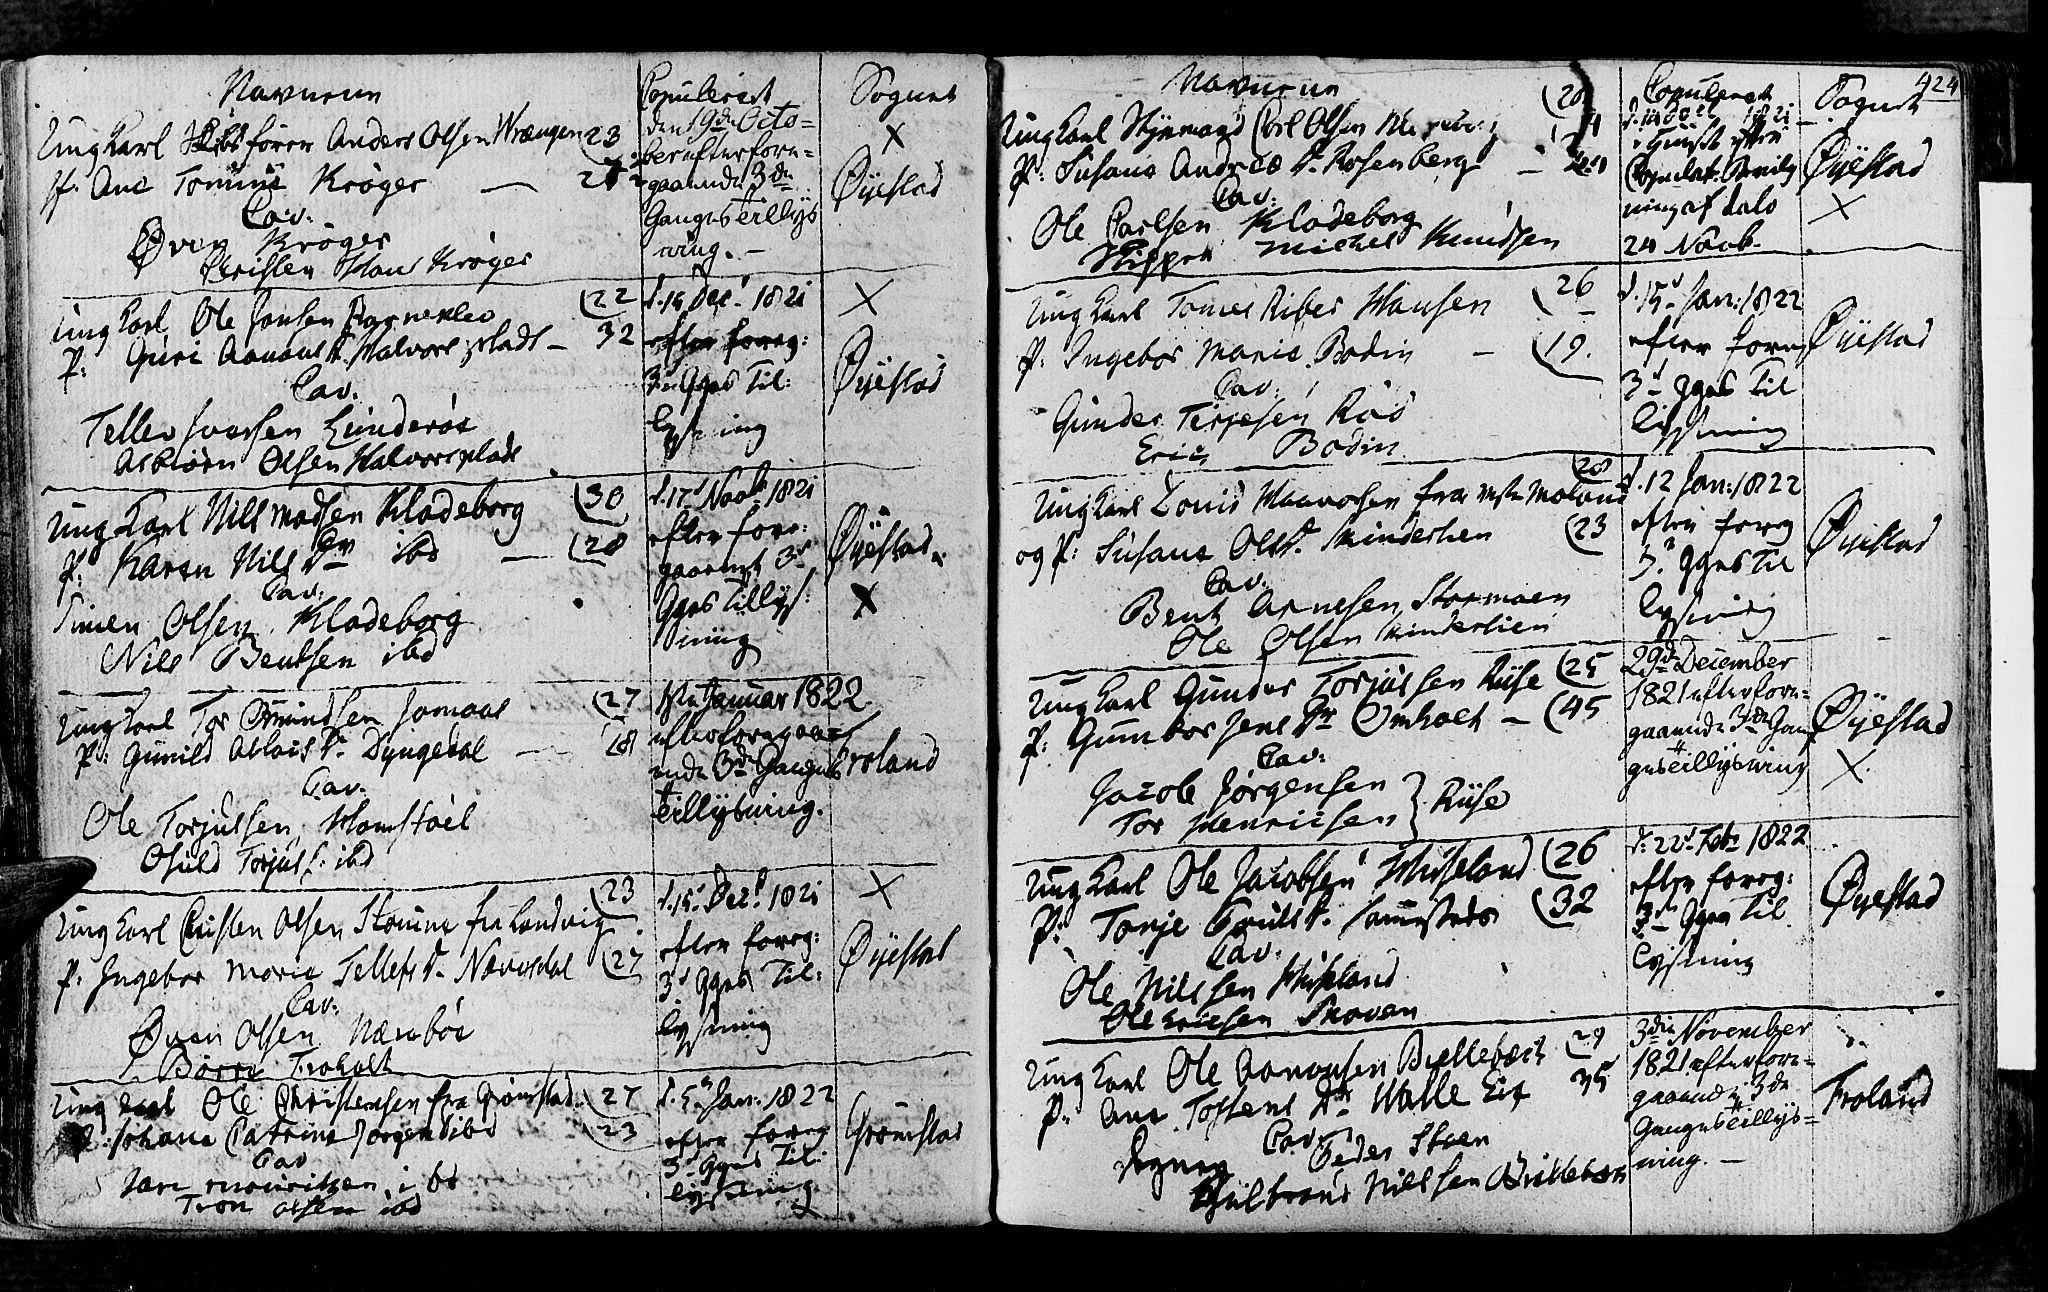 Navnene Copuleret Sognet
Ung Karl Skibsfører Anders Olsen Wrængen 23
P. Ane Tomine Krøger — 27
Cav:
Øven Krøger
Christen Hans Krøger
den 19de Octo=
ber efter fore=
gaaende 3de
Ganges tillys
ning. —
X
Øyestad
Ung Karl Ole Jensen 22
P: Guri Aanons D. Halvorsplads — 32
Cav.
Tellev Iversen Lunderøe
Asbiørn Olsen Halvorsplads
d. 15 Dec. 1821
efter foreg:
3de Gges Til:
lysning
X
Øyestad
Ung Karl Nils Madsen Kladeborg 30
P: Karen Nils Dr ibd — 28
Cav:
Simen Olsen Kladeborg
Nils Bentsen ibd
d. 17d Novb. 1821
efter fore:
gaaend 3d
Gges Tillys:
ning
Øyestad
X
Ung Karl Tor Omundsen Jomaas 27
P: Gunild Aslacs D. Dyngedal — 28
Cav.
Ole Torjussen Hamstøel
Osuld Torjuss: ibd
1ste Januar 1822
efter foregaae
ende 3de Ganges
tillysning.
Froland
Ung Karl Christen Olsen Stomne fra Landvig 23
P: Ingebor Maria Tellefs D. Nævisdal 27
Cav:
Øven Olsen Næsebøe
Børre Froholt
d. 15d Dec. 1821
efter foreg:
3d Gges Til:
lysning
X
Øyestad
Ung Karl Ole Christensen fra Grømstad 27
P: Johane Catrine Jørgens ibd 23
Cav
Tron Olsen ibd
d. 5te Jan: 1822
efter foreg
3d Gges Til:
lysning
Grømstad
Navnene Copuleret Sognet 424
Ung Karl Styrmand Carl Olsen 28
P: Susane Andrea D. Rosenberg —
Cav:
Ole Carlsen Kladeborg
Skipper Michel Knudsen
24 Novb.
Øyestad
X
Ung Karl Tomes Riber Hansen 26
P: Ingebor Marie Bodin — 19.
Cav:
Gunder Terjesen Røs
Eric Bodin
d. 15d Jan: 1822
efter foreg
3d Gges Til
lysning
Øyestad
Ung Karl Zonis Haavolsen fra Østre Moland 28
og P: Susane Ols D. Skinderlien 23
Cav:
Bent Arnesen Stormoen
Ole Olsen Skinderlien
d. 12 Jan: 1822
efter foreg
3d Gges Til
lysning
Øyestad
Ung Karl Gunder Torjussen Riise 25
P: Gumbor Jens Dr Omholt — 45
Cav:
Jacob Jørgensen
Tor Henricsen } Riise
29de December
1821 efter fore=
gaaende 3de Gan
ges tillysning
Øyestad
X
Ung Karl Ole Jacobsen Hisseland 26
P: Tonje Truls D. 32
Cav:
Ole Nilssen Hisseland
Ole Ericsen Skoven
d: 22d Feb 1822
efter foreg:
3de Gges Til
lysning
Øyestad
Ung Karl Ole Aanonsen Bellebært 29
P: Ane Tostens Dr Walle Eie 35
Cav:
Peder Steen
Gulbrand Nilssen
3die November
1821 efter fore=
gaaende 3de
Ganges tillys=
ning. —
Froland